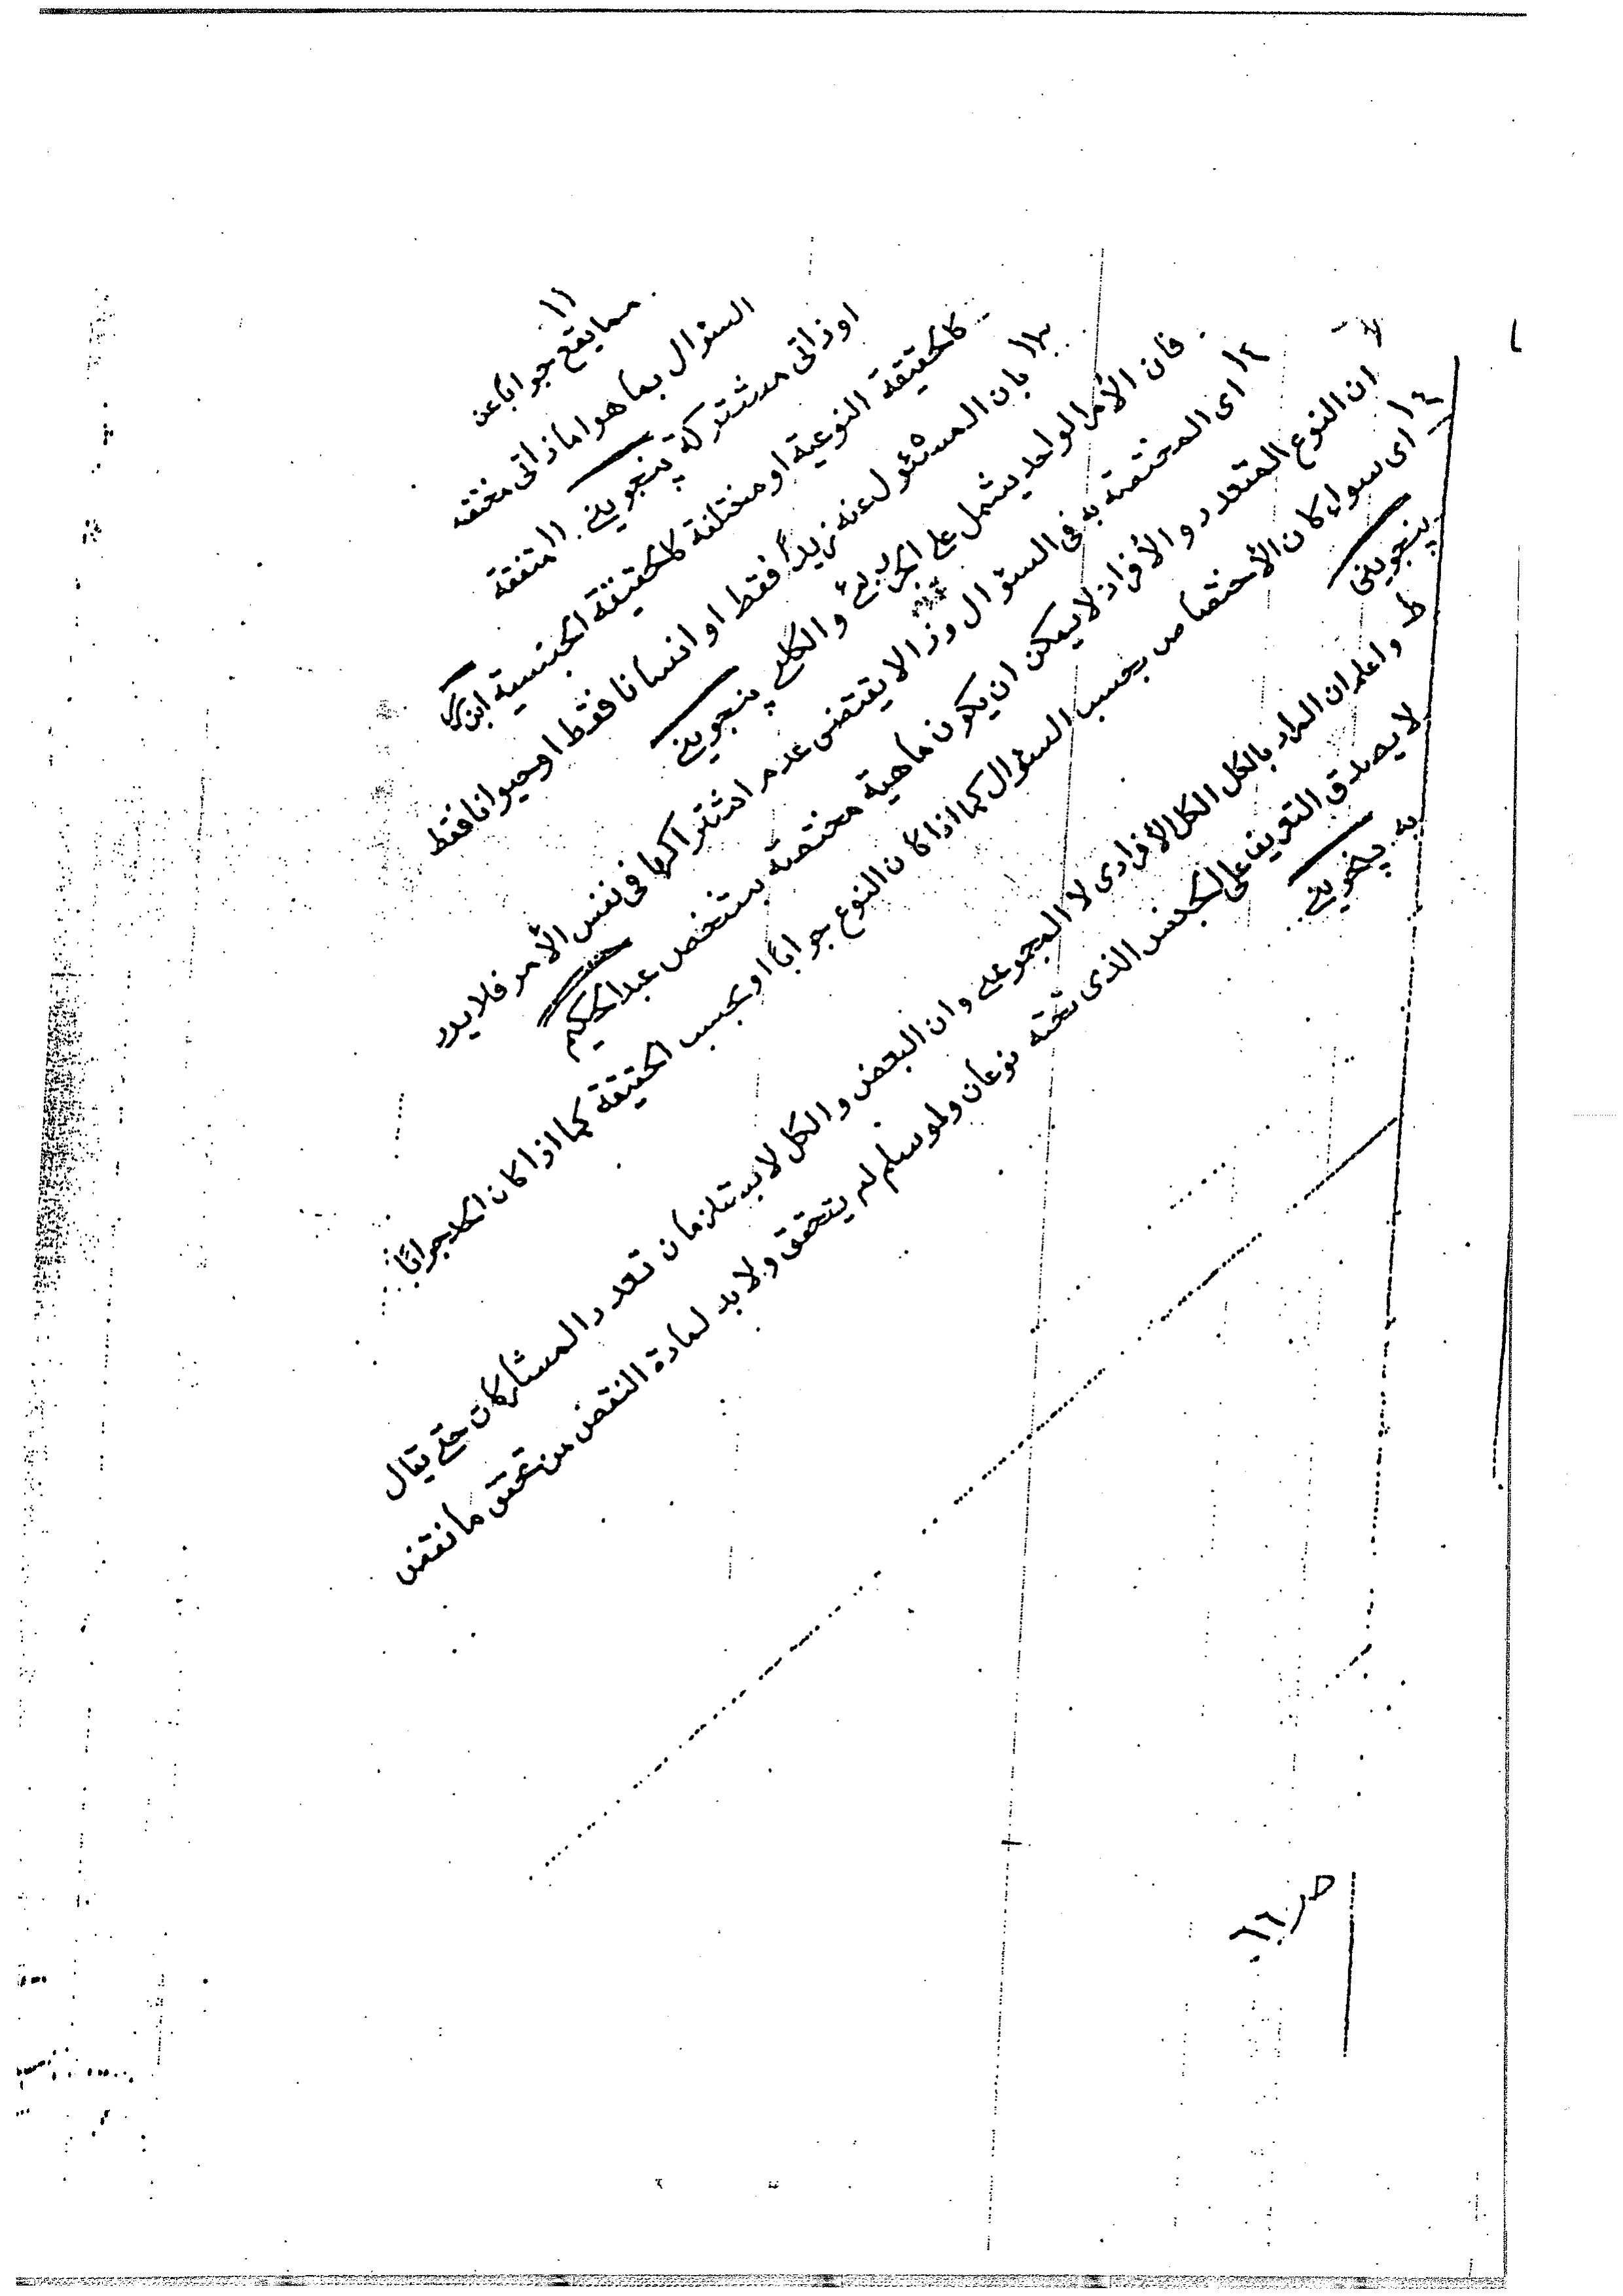 ١١
مما يقع جوابا عن
السؤال بما هو اما ذاتى مختصه
او ذاتى مشتركة پنجوينے ١١ متفقة
كالحقيقة النوعية او مختلفة كالحقيقة الجنسية ابن ك
١٢ بان المسئول عنه زيدا فقط او انسانا فقط او حيوانا فقط
فان الأمر الواحد يشمل على الجزئے والكلے پنجوينے
١٢ اى المختصة به فى السؤال وذا لا يقتضى عدم اشتراكها فى نفس الأمر فلا يرد
ان النوع المتعدد الأفراد لا يمكن ان يكون ماهية مختصة بشخص عبدالحكيم
١٤ اى سواء كان الأختصاص بحسب السؤال كما اذا كان النوع جوابًا او بحسب الحقيقة كما اذا كان الحد جوابًا
پنجوينى
ط واعلم ان المراد بالكل الكل الأفرادى لا المجموعے وان البعض والكل لا يستلزمان تعدد المشاركات حتے يقال
لا يصدق التعريف على الجنس الذى تحته نوعان ولو سلم لم يتحقق ولا بد لمادة النقض من تحقق ما نقض
به پنجوينے
صـ ١٦